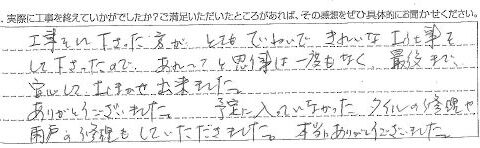 実際に工事を終えていかがでしたか？ご満足いただいたところがあれば、その感想をぜひ具体的にお聞かせください。
工事をして下さった方が、とてもていねいで きれいな お仕事を
して下さったので、あれ〜って思う事は一度もなく、最後まで、
安心して、おまかせ出来ました。
ありがとうございました。 予定に入っていなかった タイルの修理や
雨戸の修理もしていただきました。本当にありがとうございました。